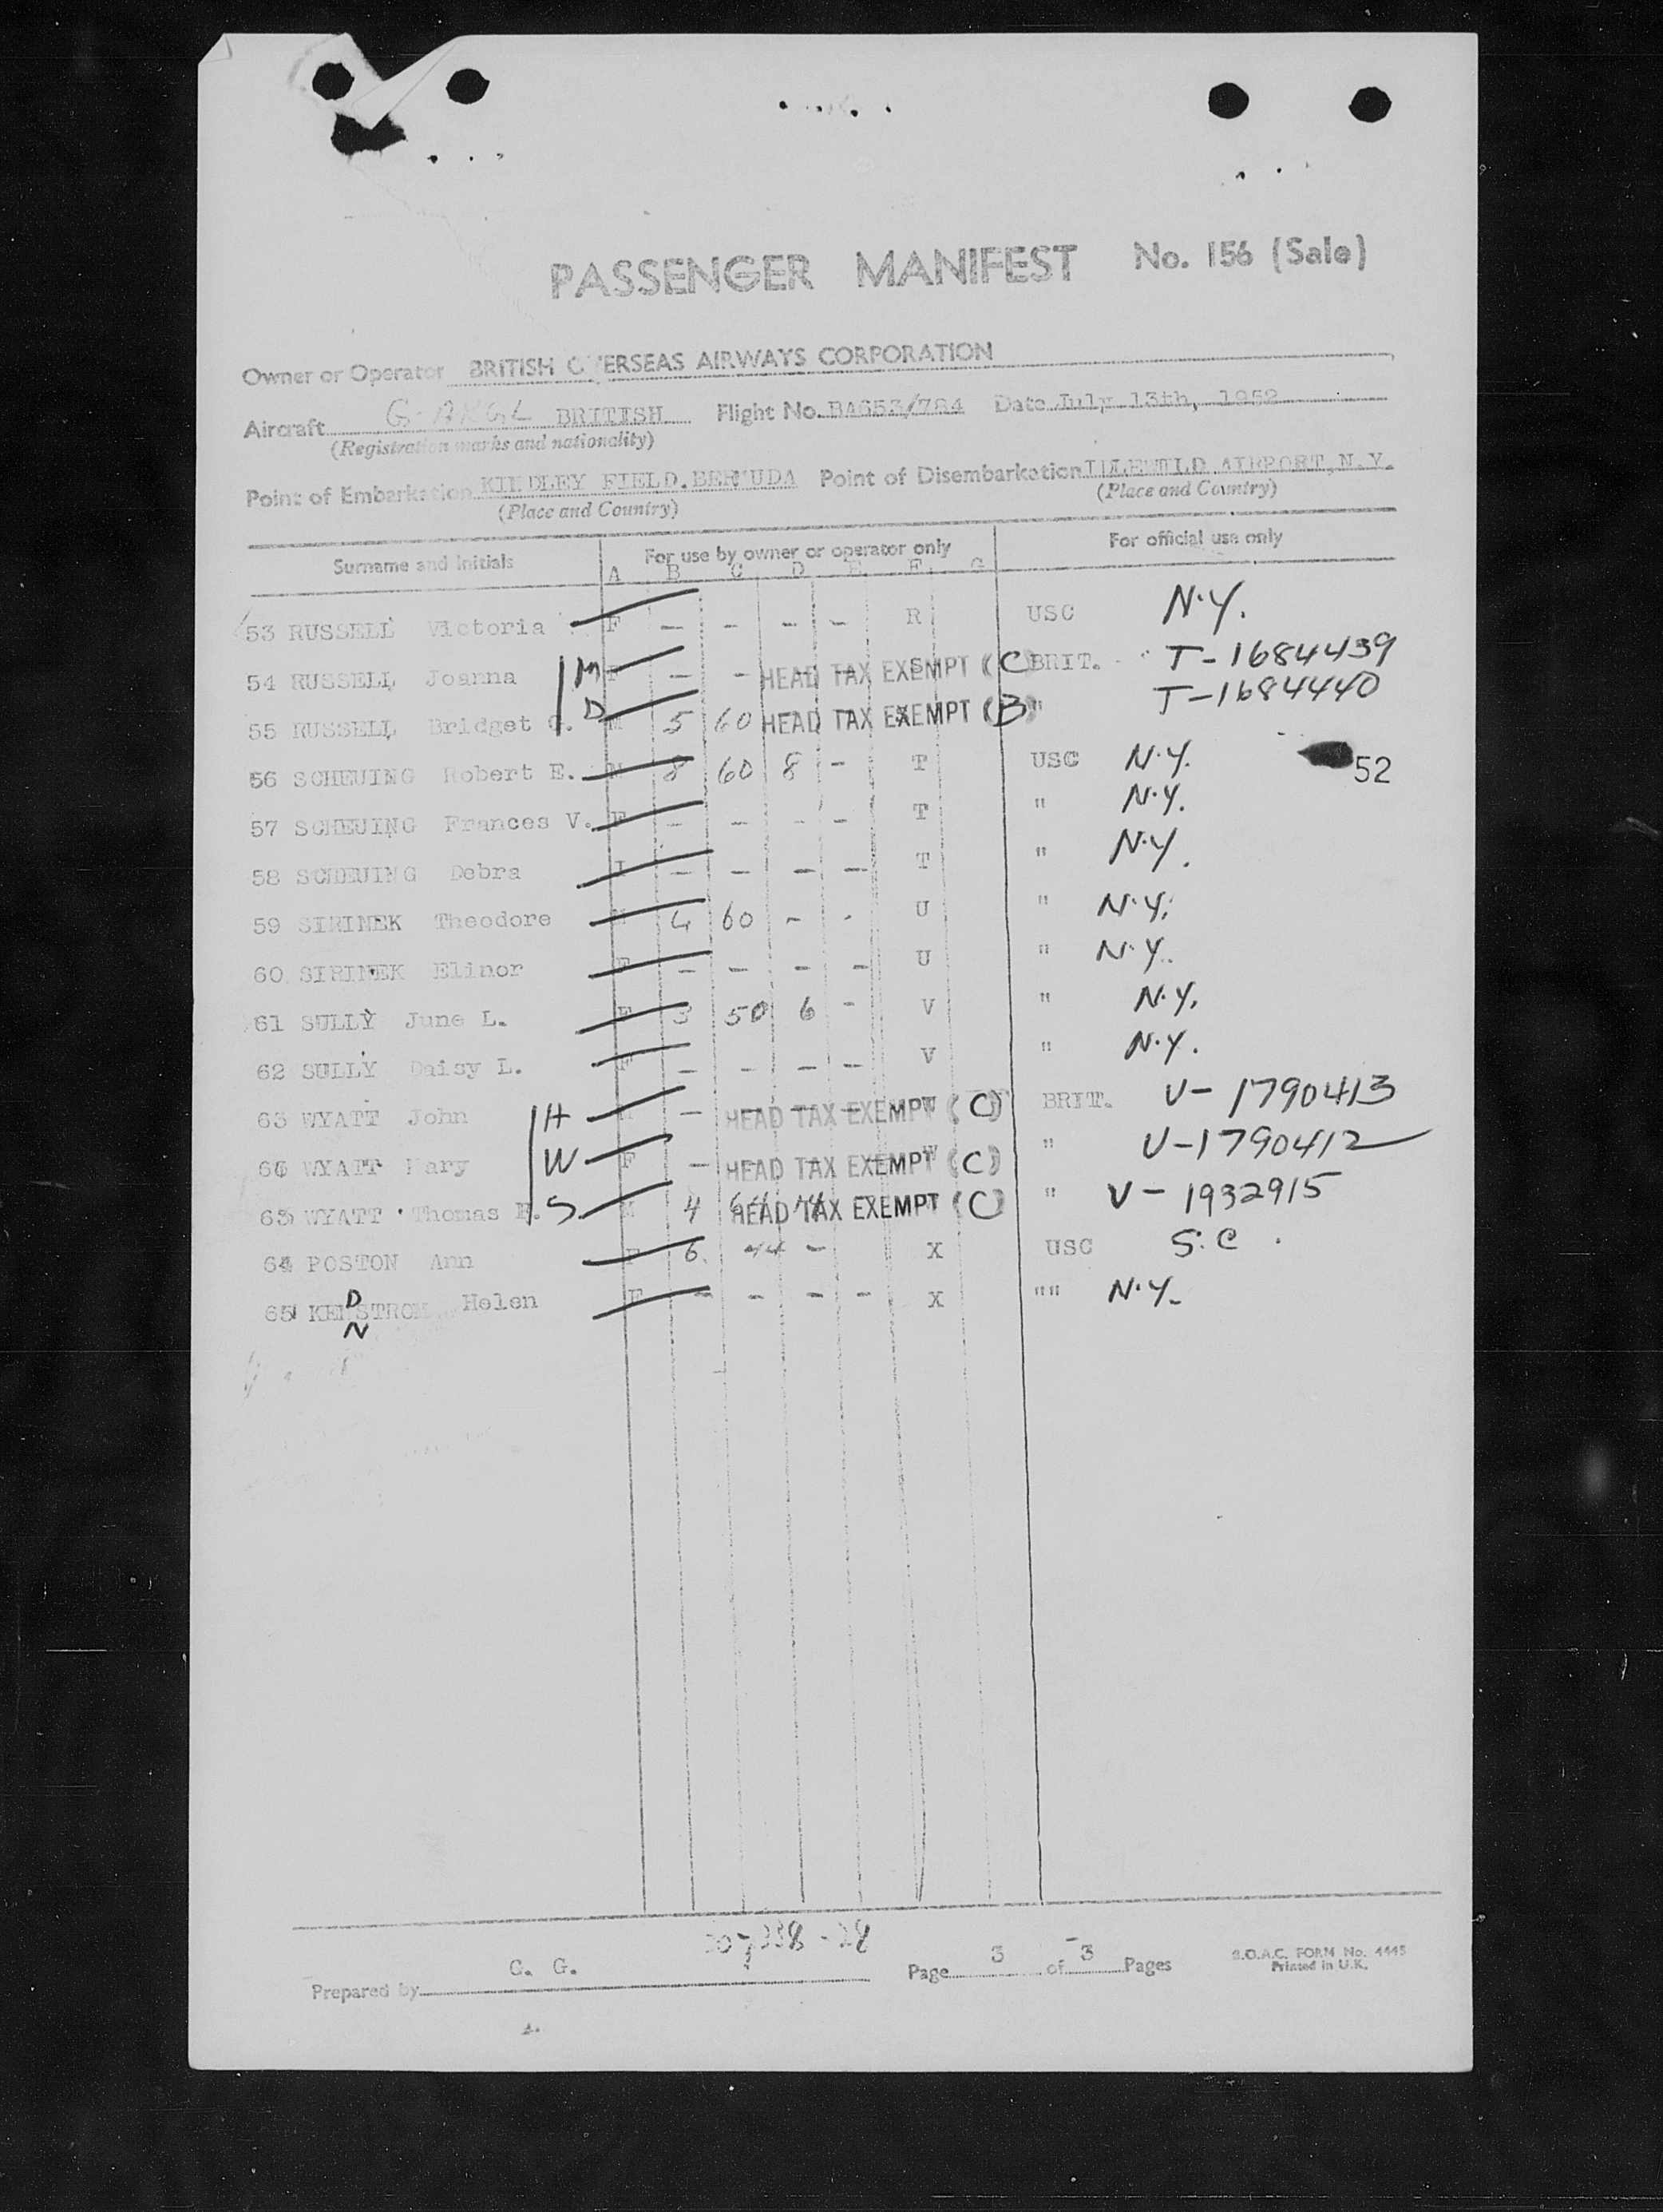 PASSENGER MANIFEST No. 156 (Sale)
Owner or Operator BRITISH OVERSEAS AIRWAYS CORPORATION
Aircraft BRITISH Flight No. BA653/784 Date July 13th, 1952
(Registration marks and nationality)
Point of Embarkation KINDLEY FIELD, BERMUDA Point of Disembarkation IDLEWILD AIRPORT, N.Y.
(Place and Country) (Place and Country)
Surname and Initials For use by owner or operator only For official use only
A B C D E F G
53 RUSSELL Victoria F — - - - R USC N.Y.
54 RUSSELL Joanna M F — - HEAD TAX EXEMPT (C) BRIT. T-1684439
55 RUSSELL Bridget G. D M 5 60 HEAD TAX EXEMPT (B) " T-1684440
56 SCHEUING Robert E. M 8 60 8 - T USC N.Y. 52
57 SCHEUING Frances V. F — - - - T " N.Y.
58 SCHEUING Debra I — - - - T " N.Y.
59 SIRINEK Theodore M 4 60 - - U " N.Y.
60 SIRINEK Elinor F — - - - U " N.Y.
61 SULLY June L. F 3 50 6 - V " N.Y.
62 SULLY Daisy L. F — - - - V " N.Y.
63 WYATT John H M — HEAD TAX EXEMPT (C) BRIT. V-1790413
WYATT Mary W F — HEAD TAX EXEMPT (C) " V-1790412
WYATT Thomas S. M 4 HEAD TAX EXEMPT (C) " V-1932915
POSTON Ann F 6 44 - X USC S.C.
Helen F - - - - X "" N.Y.
Prepared by C. G. Page 3 of 3 Pages
B.O.A.C. FORM No. 4445
Printed in U.K.